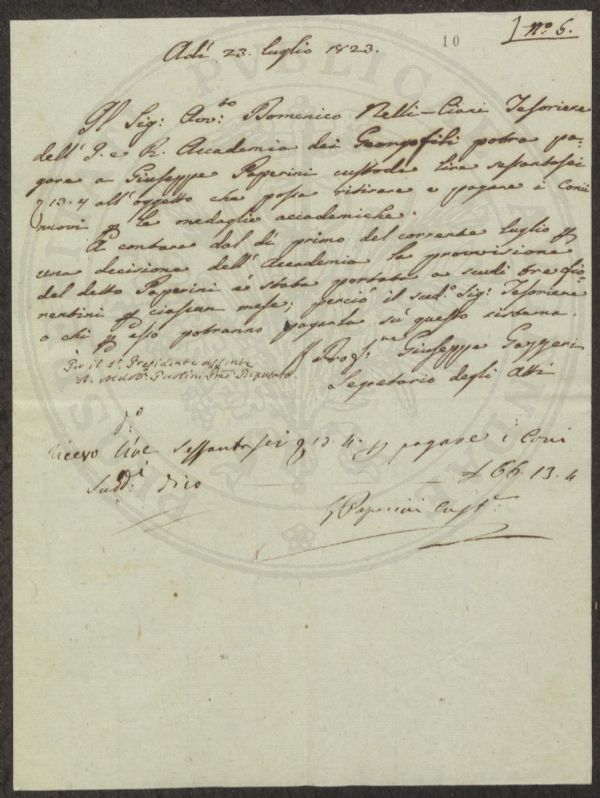 10
n.º 6.
Adì 23. luglio 1823.
Il Sig: Avv:to Domenico Nelli-Ciani Tesoriere
dell' I. e R. Accademia dei Georgofili potrà pa-
gare a Giuseppe Paperini custode lire sessantasei
13. 4 all' oggetto che possa ritirare e pagare i Conii
nuovi p le medaglie accademiche.
A contare dal dì primo del corrente luglio p
una decisione dell' Accademia la provvisione
del detto Paperini è stata portata a scudi tre fio-
rentini p ciascun mese; perciò il sud.º Sig: Tesoriere
o chi p esso potranno pagarla su questo sistema.
Prof.re Giuseppe Gazzeri
Segretario degli Atti
Per il S.r Presidente assente
Deputato.
d.º
Ricevo lire sessantasei 13. 4. p pagare i Coni
sudd.i dico — — £ 66. 13. 4
G Paperini Cust.e